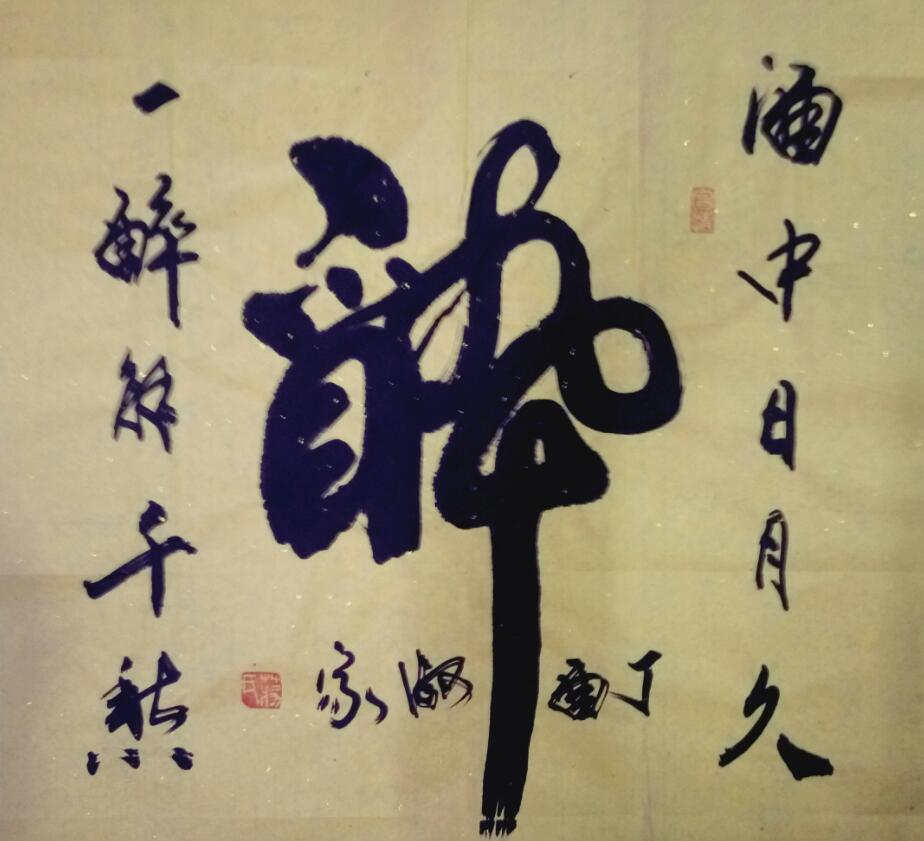 酒中日月久
醉
一醉解千愁
丁酉
家
蒋氏